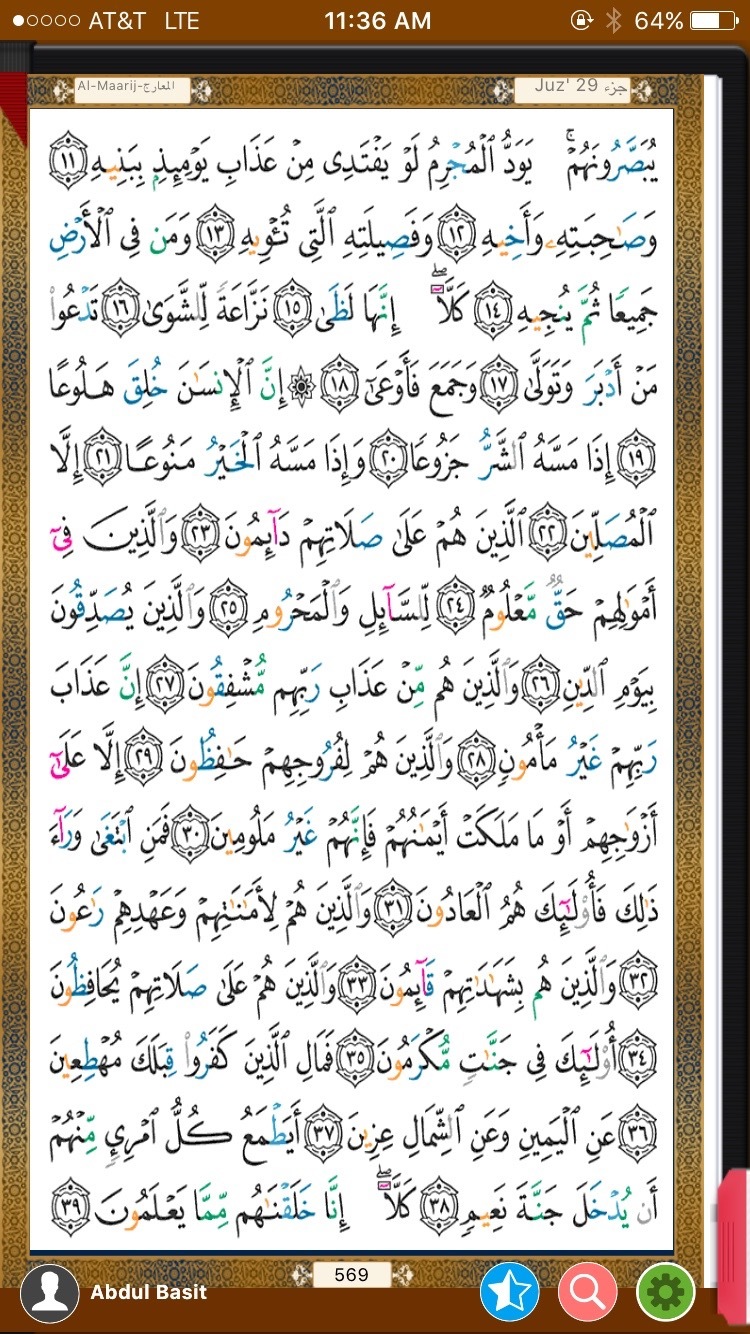 AT&T LTE 11:36 AM 64%
Al-Maarij-المعارج Juz' 29 جزء
يُبَصَّرُونَهُمْ ۚ يَوَدُّ ٱلْمُجْرِمُ لَوْ يَفْتَدِى مِنْ عَذَابِ يَوْمِئِذٍۭ بِبَنِيهِ ١١
وَصَـٰحِبَتِهِۦ وَأَخِيهِ ١٢ وَفَصِيلَتِهِ ٱلَّتِى تُـْٔوِيهِ ١٣ وَمَن فِى ٱلْأَرْضِ
جَمِيعًا ثُمَّ يُنجِيهِ ١٤ كَلَّآ ۖ إِنَّهَا لَظَىٰ ١٥ نَزَّاعَةً لِّلشَّوَىٰ ١٦ تَدْعُوا۟
مَنْ أَدْبَرَ وَتَوَلَّىٰ ١٧ وَجَمَعَ فَأَوْعَىٰٓ ١٨ ۞ إِنَّ ٱلْإِنسَـٰنَ خُلِقَ هَلُوعًا
١٩ إِذَا مَسَّهُ ٱلشَّرُّ جَزُوعًا ٢٠ وَإِذَا مَسَّهُ ٱلْخَيْرُ مَنُوعًا ٢١ إِلَّا
ٱلْمُصَلِّينَ ٢٢ ٱلَّذِينَ هُمْ عَلَىٰ صَلَاتِهِمْ دَآئِمُونَ ٢٣ وَٱلَّذِينَ فِىٓ
أَمْوَٰلِهِمْ حَقٌّ مَّعْلُومٌ ٢٤ لِّلسَّآئِلِ وَٱلْمَحْرُومِ ٢٥ وَٱلَّذِينَ يُصَدِّقُونَ
بِيَوْمِ ٱلدِّينِ ٢٦ وَٱلَّذِينَ هُم مِّنْ عَذَابِ رَبِّهِم مُّشْفِقُونَ ٢٧ إِنَّ عَذَابَ
رَبِّهِمْ غَيْرُ مَأْمُونٍ ٢٨ وَٱلَّذِينَ هُمْ لِفُرُوجِهِمْ حَـٰفِظُونَ ٢٩ إِلَّا عَلَىٰٓ
أَزْوَٰجِهِمْ أَوْ مَا مَلَكَتْ أَيْمَـٰنُهُمْ فَإِنَّهُمْ غَيْرُ مَلُومِينَ ٣٠ فَمَنِ ٱبْتَغَىٰ وَرَآءَ
ذَٰلِكَ فَأُو۟لَـٰٓئِكَ هُمُ ٱلْعَادُونَ ٣١ وَٱلَّذِينَ هُمْ لِأَمَـٰنَـٰتِهِمْ وَعَهْدِهِمْ رَٰعُونَ
٣٢ وَٱلَّذِينَ هُم بِشَهَـٰدَٰتِهِمْ قَآئِمُونَ ٣٣ وَٱلَّذِينَ هُمْ عَلَىٰ صَلَاتِهِمْ يُحَافِظُونَ
٣٤ أُو۟لَـٰٓئِكَ فِى جَنَّـٰتٍ مُّكْرَمُونَ ٣٥ فَمَالِ ٱلَّذِينَ كَفَرُوا۟ قِبَلَكَ مُهْطِعِينَ
٣٦ عَنِ ٱلْيَمِينِ وَعَنِ ٱلشِّمَالِ عِزِينَ ٣٧ أَيَطْمَعُ كُلُّ ٱمْرِئٍ مِّنْهُمْ
أَن يُدْخَلَ جَنَّةَ نَعِيمٍ ٣٨ كَلَّآ ۖ إِنَّا خَلَقْنَـٰهُم مِّمَّا يَعْلَمُونَ ٣٩
569
Abdul Basit